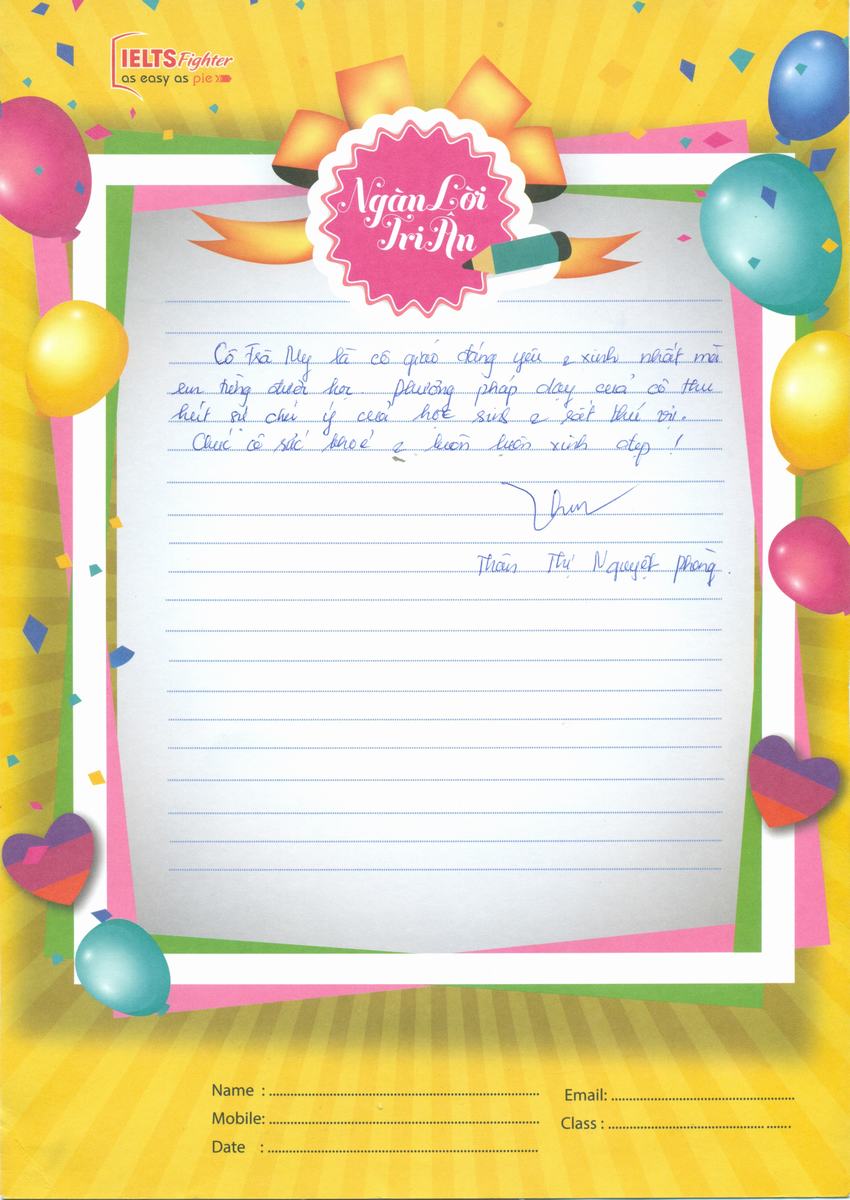 IELTS Fighter
as easy as pie
Ngàn Lời
Tri Ân
Cô Trà My là cô giáo đáng yêu & xinh nhất mà
em từng được học. Phương pháp dạy của cô thu
hút sự chú ý của học sinh & rất thú vị.
Chúc cô sức khoẻ & luôn luôn xinh đẹp !
Thân Thị Nguyệt Phong.
Name :
Email:
Mobile:
Class :
Date :